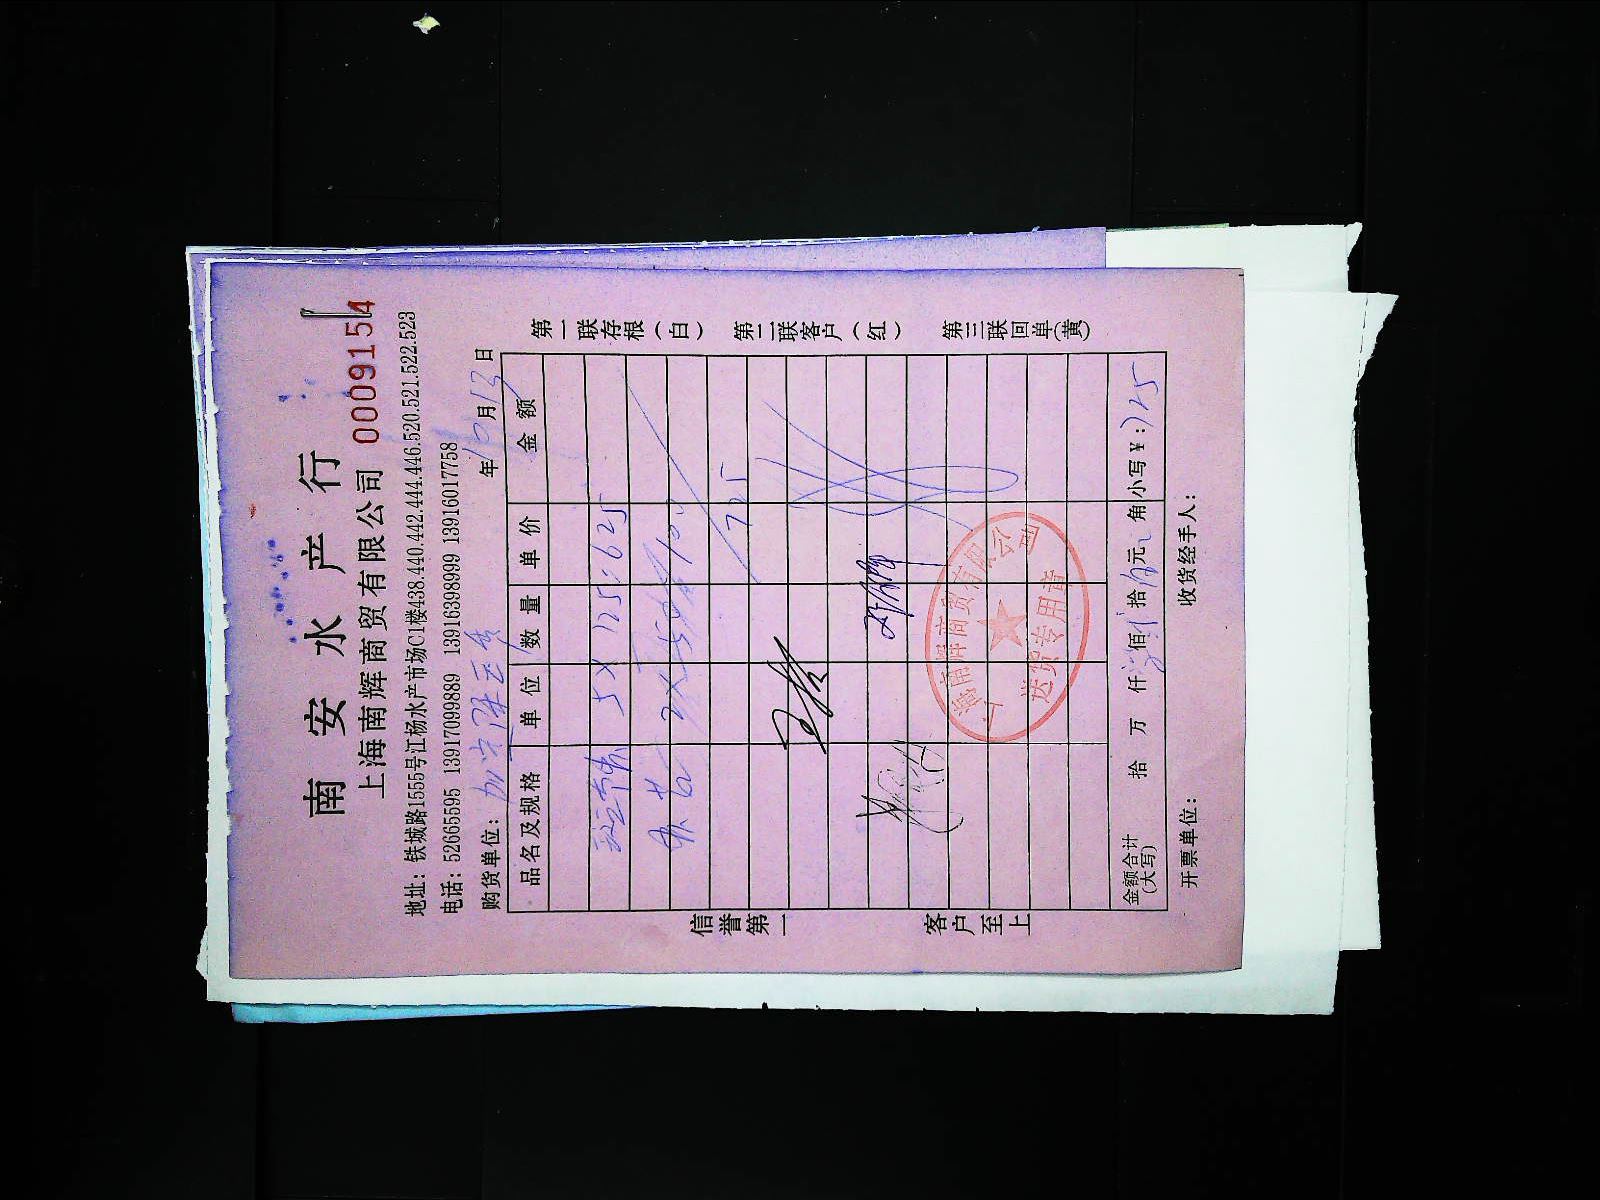 南安水产行
上海南辉商贸有限公司 0009154
地址：铁城路1555号江杨水产市场C1楼438.440.442.444.446.520.521.522.523
电话：52665595 13917099889 13916398999 13916017758
购货单位： 年 10 月 13 日
品名及规格 单位 数量 单价 金额
5×125=625
725
金额合计（大写） 拾 万 仟 佰 拾 元 角 小写￥：725
开票单位： 收货经手人：
信誉第一 客户至上
第一联存根（白） 第二联客户（红） 第三联回单（黄）
上海南辉商贸有限公司
送货专用章